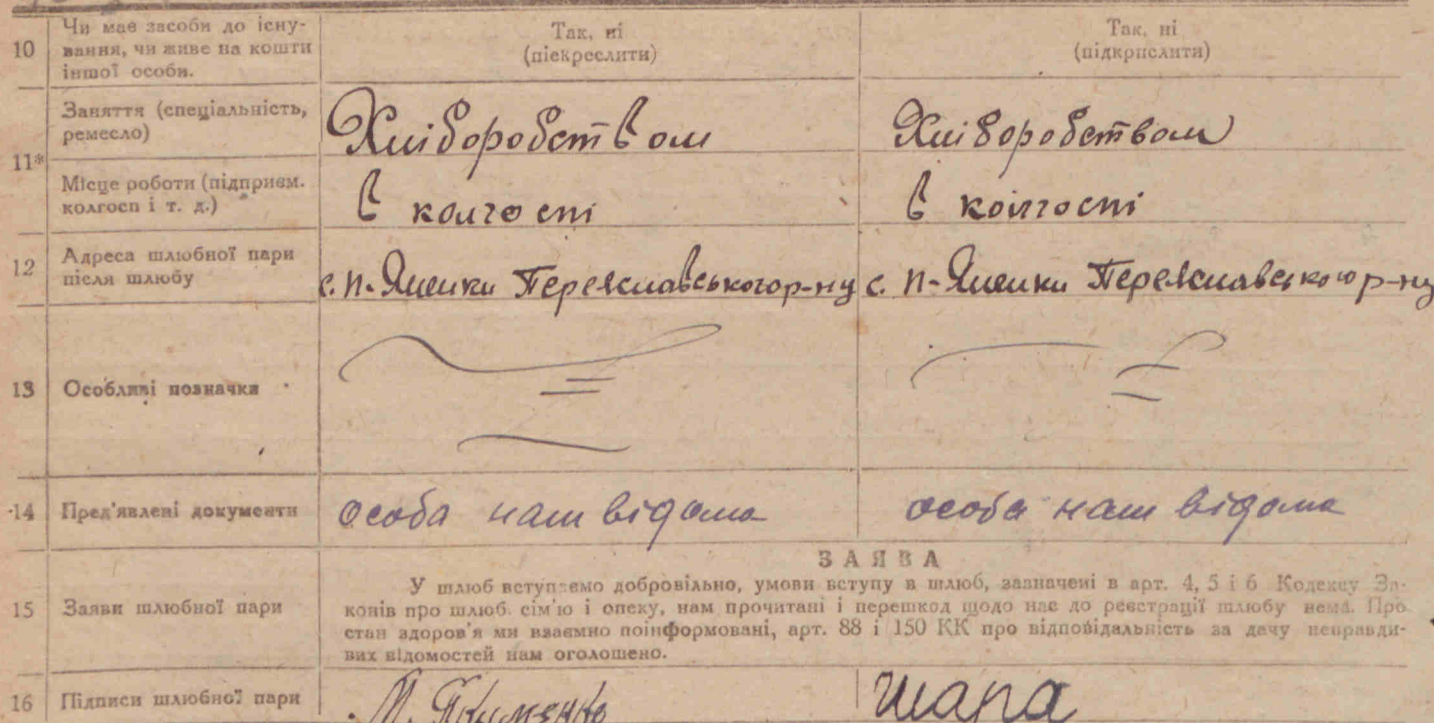 10 Чи має засоби до існування, чи живе на кошти іншої особи.
Так, ні
(піекреслити)
Так, ні
(підкрислити)
11* Заняття (спеціальність, ремесло)
Хліборобством
Хліборобством
Місце роботи (підприєм. колгосп і т. д.)
в колгоспі
в колгоспі
12 Адреса шлюбної пари після шлюбу
с. П- Переяславського р-ну
с. П- Переяславського р-ну
13 Особливі позначки
14 Пред'явлені документи
особа нам відома
особа нам відома
15 Заяви шлюбної пари
ЗАЯВА
У шлюб вступаємо добровільно, умови вступу в шлюб, зазначені в арт. 4, 5 і 6 Кодексу За-
конів про шлюб. сім'ю і опеку, нам прочитані і перешкод щодо нас до реєстрації шлюбу нема. Про
стан здоров'я ми взаємно поінформовані, арт. 88 і 150 КК про відповідальність за дачу неправди-
вих відомостей нам оголошено.
16 Підписи шлюбної пари
Шара